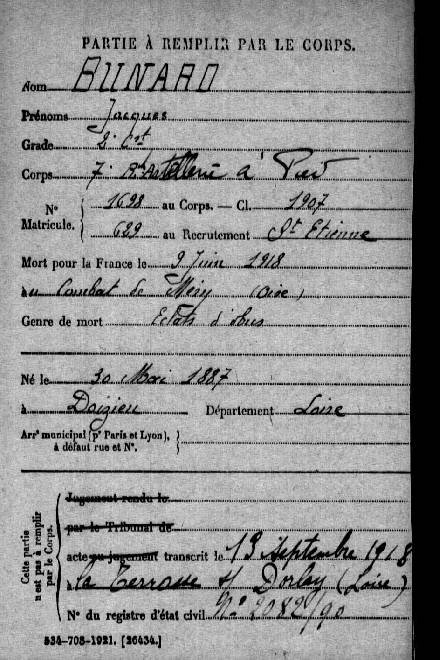 PARTIE À REMPLIR PAR LE CORPS.
Nom BUNARD
Prénoms Jacques
Grade 2e Ct
Corps 7e Rt Artillerie à Pied
N° Matricule. 1698 au Corps. — Cl. 1907
629 au Recrutement St Etienne
Mort pour la France le 9 Juin 1918
au Combat de Méry (Oise)
Genre de mort Eclats d'obus
Né le 30 Mai 1887
à Doizieu Département Loire
Arrt municipal (pr Paris et Lyon), à défaut rue et N°.
Cette partie n'est pas à remplir par le Corps.
Jugement rendu le
par le Tribunal de
acte ou jugement transcrit le 13 Septembre 1918
à la Terrasse s/ Dorlay (Loire)
N° du registre d'état civil N° 2082/90
534-708-1921. [26434.]